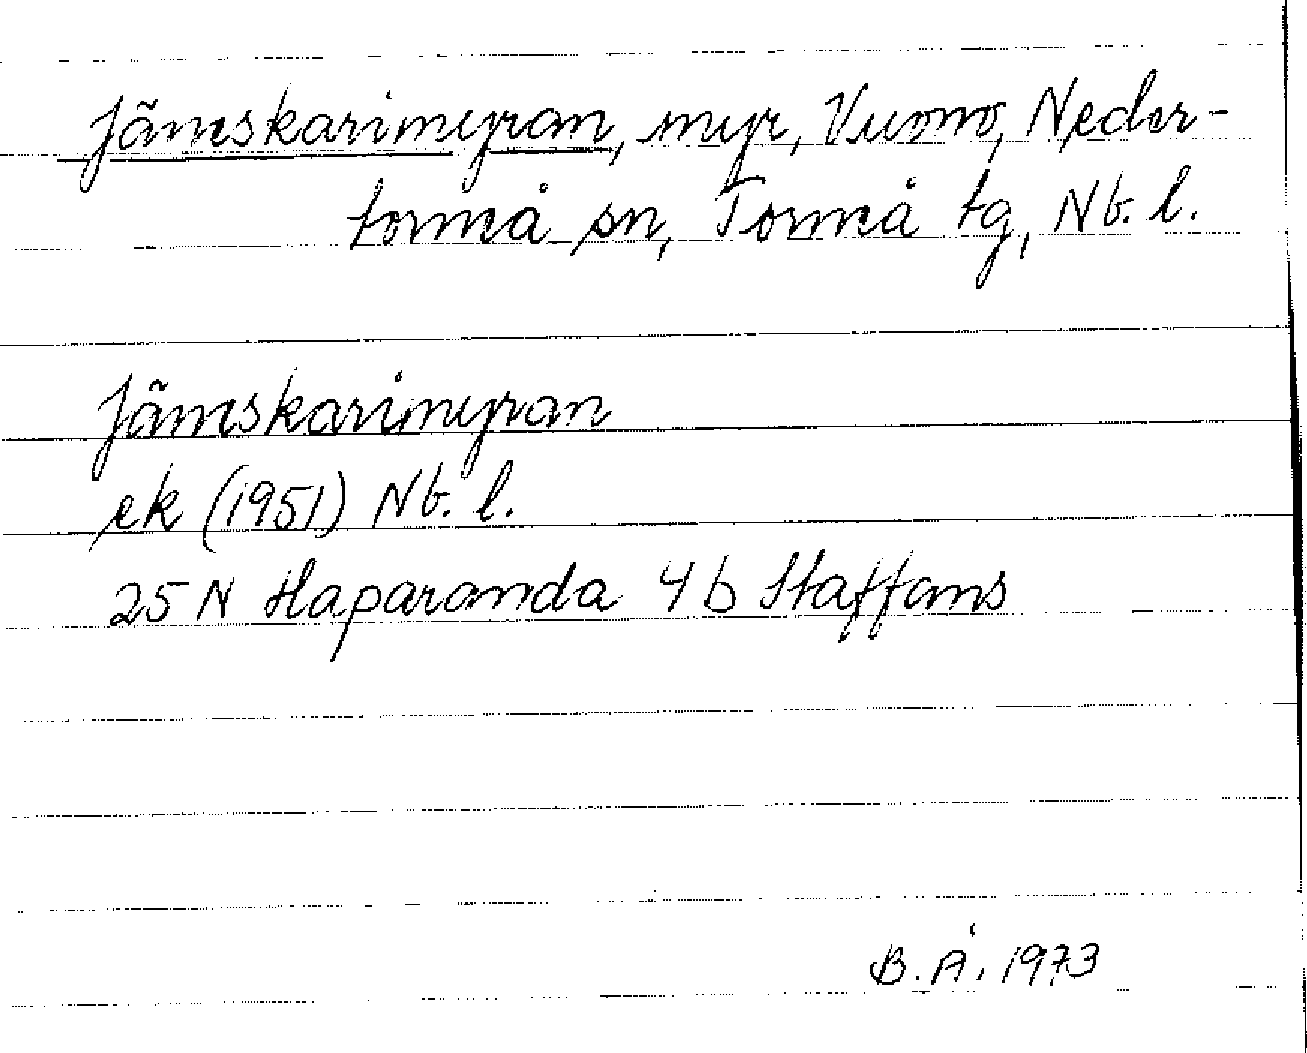 Jämskarimyran, myr, Vuono, Neder-
torneå sn, Torneå tg, Nb. l.
Jämskarimyran
ek (1951) Nb. l.
25 N Haparanda 4 b Staffans
B. Å. 1973